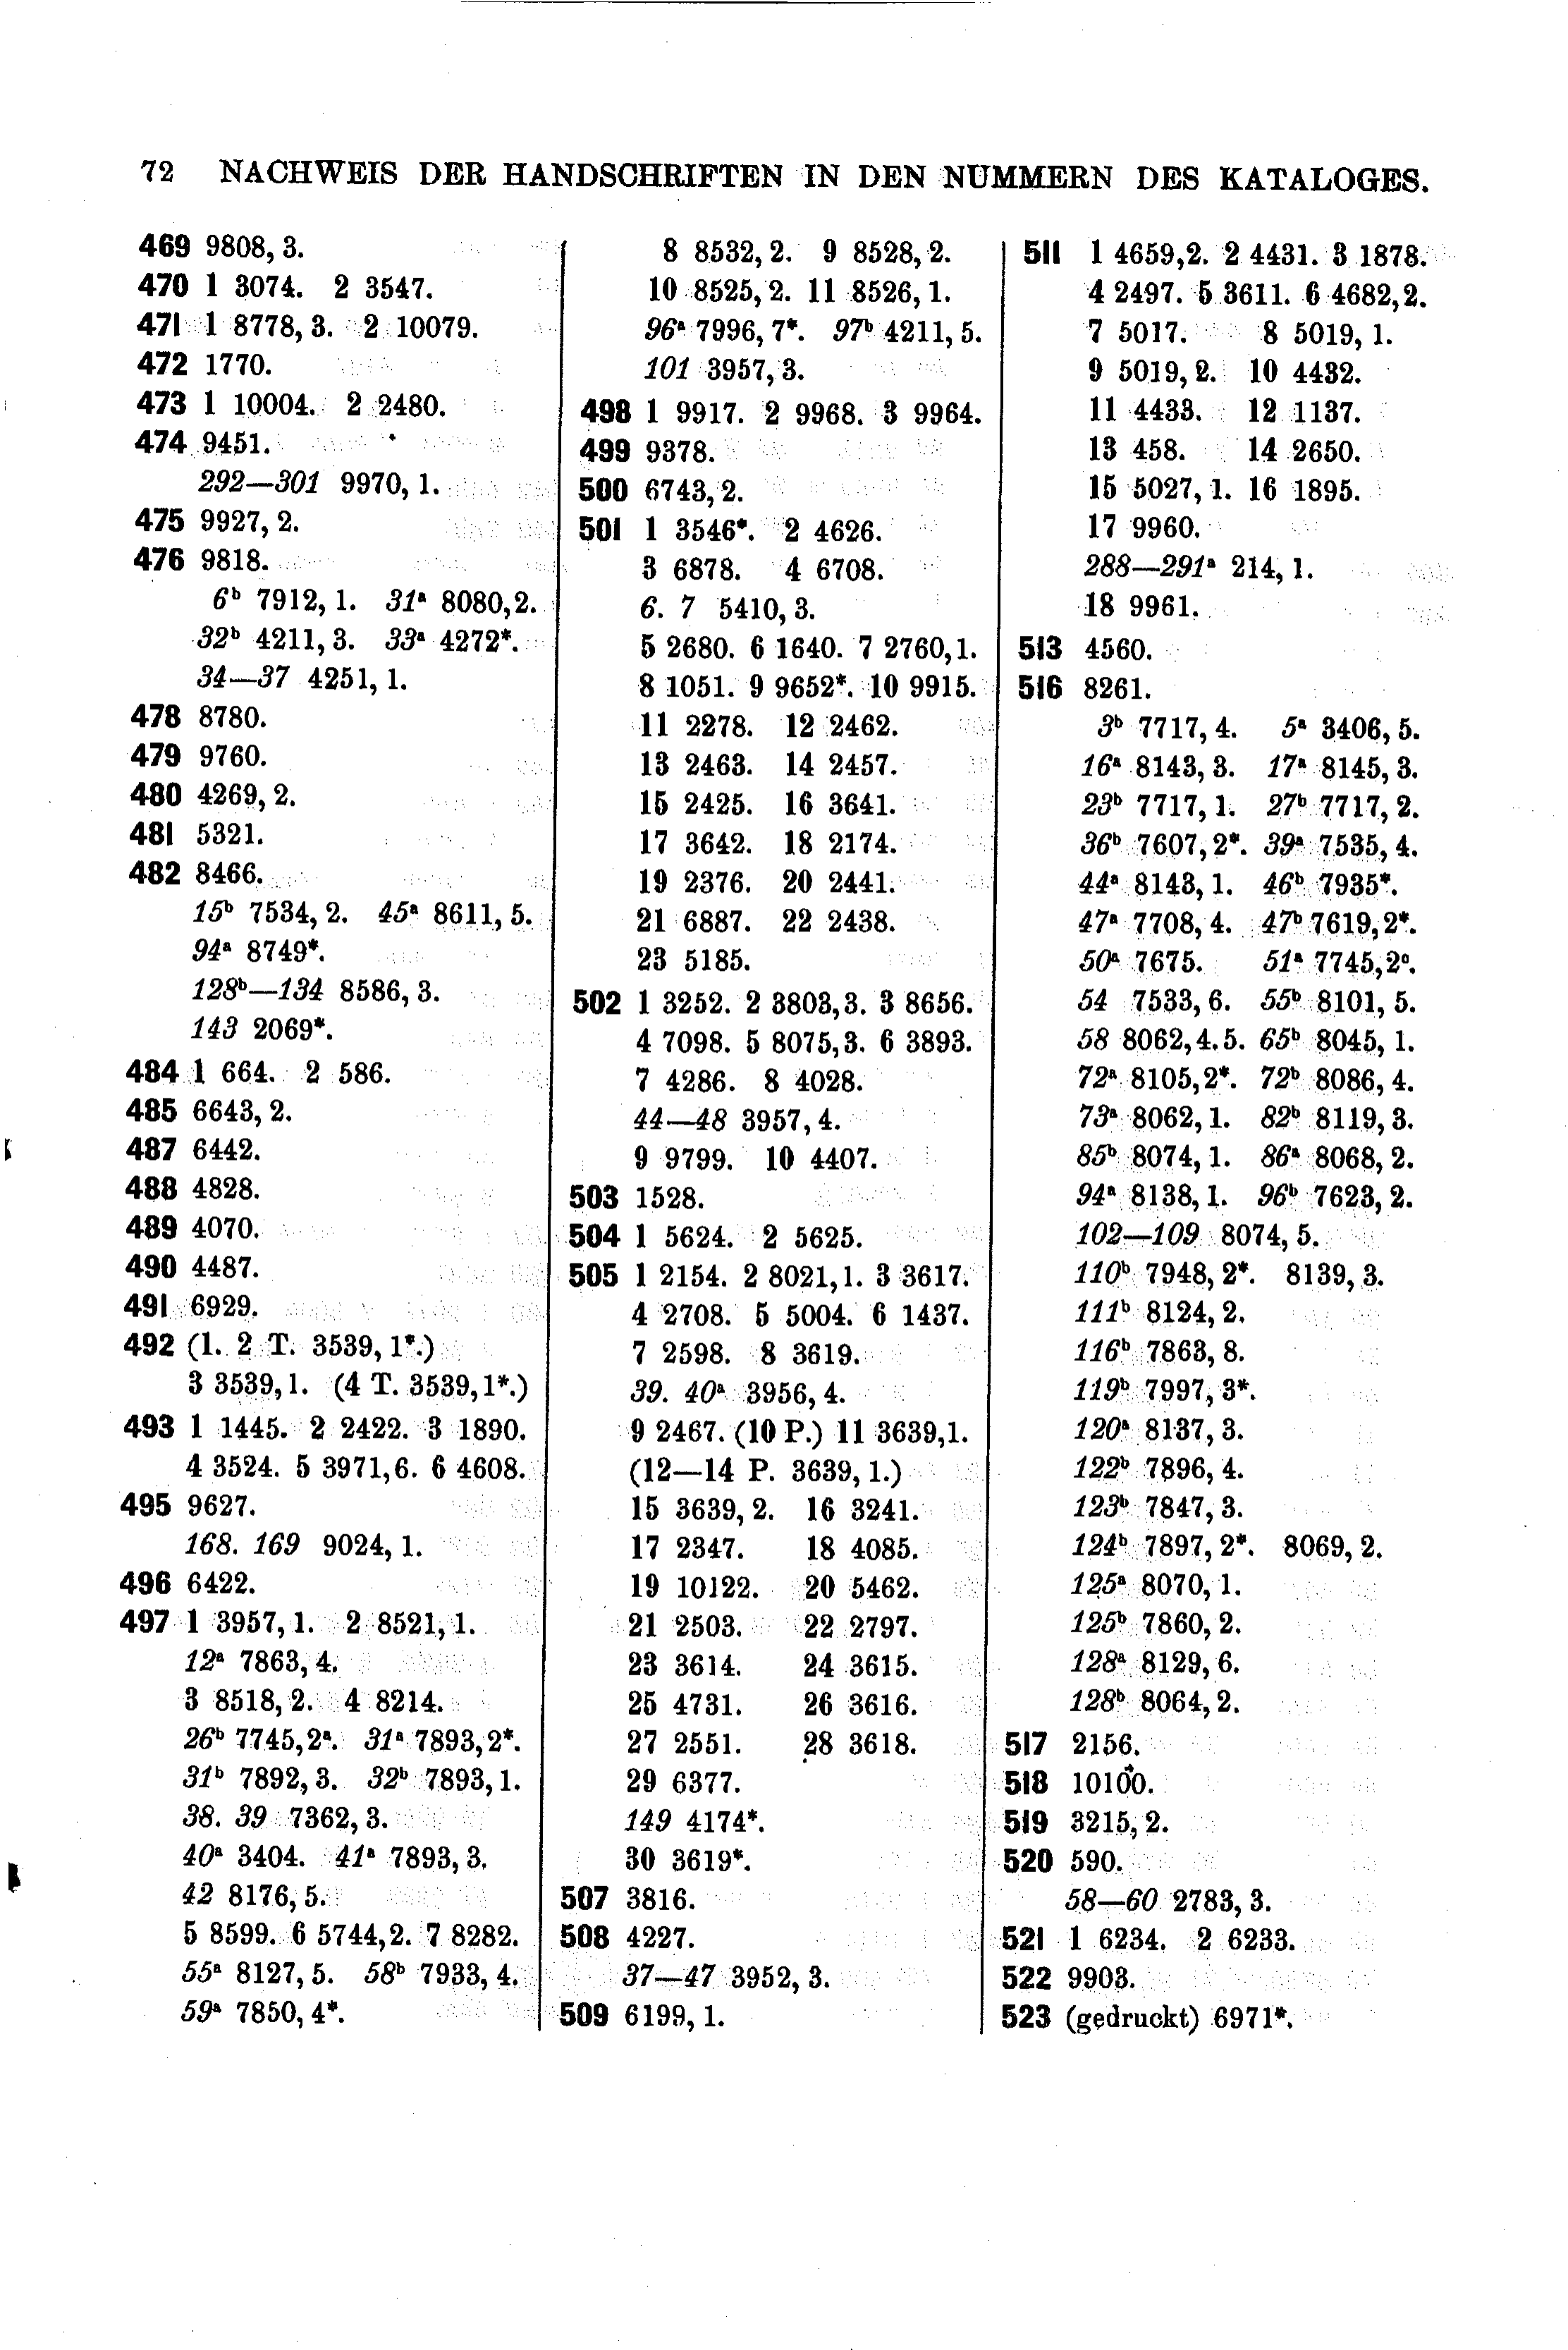 72 NACHWEIS DER HANDSCHRIFTEN IN DEN NUMMERN DES KATALOGES.
469 9808, 3.
470 1 3074. 2 3547.
471 1 8778, 3. 2 10079.
472 1770.
473 1 10004. 2 2480.
474 9451.
292—301 9970, 1.
475 9927, 2.
476 9818.
6ᵇ 7912, 1. 31ᵃ 8080, 2.
32ᵇ 4211, 3. 33ᵃ 4272*.
34—37 4251, 1.
478 8780.
479 9760.
480 4269, 2.
481 5321.
482 8466.
15ᵇ 7534, 2. 45ᵃ 8611, 5.
94ᵃ 8749*.
128ᵇ—134 8586, 3.
143 2069*.
484 1 664. 2 586.
485 6643, 2.
487 6442.
488 4828.
489 4070.
490 4487.
491 6929.
492 (1. 2 T. 3539, 1*.)
3 3539, 1. (4 T. 3539, 1*.)
493 1 1445. 2 2422. 3 1890.
4 3524. 5 3971, 6. 6 4608.
495 9627.
168. 169 9024, 1.
496 6422.
497 1 3957, 1. 2 8521, 1.
12ᵃ 7863, 4.
3 8518, 2. 4 8214.
26ᵇ 7745, 2ᵃ. 31ᵃ 7893, 2*.
31ᵇ 7892, 3. 32ᵇ 7893, 1.
38. 39 7362, 3.
40ᵃ 3404. 41ᵃ 7893, 3.
42 8176, 5.
5 8599. 6 5744, 2. 7 8282.
55ᵃ 8127, 5. 58ᵇ 7933, 4.
59ᵃ 7850, 4*.
8 8532, 2. 9 8528, 2.
10 8525, 2. 11 8526, 1.
96ᵃ 7996, 7*. 97ᵇ 4211, 5.
101 3957, 3.
498 1 9917. 2 9968. 3 9964.
499 9378.
500 6743, 2.
501 1 3546*. 2 4626.
3 6878. 4 6708.
6. 7 5410, 3.
5 2680. 6 1640. 7 2760, 1.
8 1051. 9 9652*. 10 9915.
11 2278. 12 2462.
13 2463. 14 2457.
15 2425. 16 3641.
17 3642. 18 2174.
19 2376. 20 2441.
21 6887. 22 2438.
23 5185.
502 1 3252. 2 3803, 3. 3 8656.
4 7098. 5 8075, 3. 6 3893.
7 4286. 8 4028.
44—48 3957, 4.
9 9799. 10 4407.
503 1528.
504 1 5624. 2 5625.
505 1 2154. 2 8021, 1. 3 3617.
4 2708. 5 5004. 6 1437.
7 2598. 8 3619.
39. 40ᵃ 3956, 4.
9 2467. (10 P.) 11 3639, 1.
(12—14 P. 3639, 1.)
15 3639, 2. 16 3241.
17 2347. 18 4085.
19 10122. 20 5462.
21 2503. 22 2797.
23 3614. 24 3615.
25 4731. 26 3616.
27 2551. 28 3618.
29 6377.
149 4174*.
30 3619*.
507 3816.
508 4227.
37—47 3952, 3.
509 6199, 1.
511 1 4659, 2. 2 4431. 3 1878.
4 2497. 5 3611. 6 4682, 2.
7 5017. 8 5019, 1.
9 5019, 2. 10 4432.
11 4433. 12 1137.
13 458. 14 2650.
15 5027, 1. 16 1895.
17 9960.
288—291ᵃ 214, 1.
18 9961.
513 4560.
516 8261.
3ᵇ 7717, 4. 5ᵃ 3406, 5.
16ᵃ 8143, 3. 17ᵃ 8145, 3.
23ᵇ 7717, 1. 27ᵇ 7717, 2.
36ᵇ 7607, 2*. 39ᵃ 7535, 4.
44ᵃ 8143, 1. 46ᵇ 7935*.
47ᵃ 7708, 4. 47ᵇ 7619, 2*.
50ᵃ 7675. 51ᵃ 7745, 2ᶜ.
54 7533, 6. 55ᵇ 8101, 5.
58 8062, 4. 5. 65ᵇ 8045, 1.
72ᵃ 8105, 2*. 72ᵇ 8086, 4.
73ᵃ 8062, 1. 82ᵇ 8119, 3.
85ᵇ 8074, 1. 86ᵃ 8068, 2.
94ᵃ 8138, 1. 96ᵇ 7623, 2.
102—109 8074, 5.
110ᵇ 7948, 2*. 8139, 3.
111ᵇ 8124, 2.
116ᵇ 7863, 8.
119ᵇ 7997, 3*.
120ᵃ 8137, 3.
122ᵇ 7896, 4.
123ᵇ 7847, 3.
124ᵇ 7897, 2*. 8069, 2.
125ᵃ 8070, 1.
125ᵇ 7860, 2.
128ᵃ 8129, 6.
128ᵇ 8064, 2.
517 2156.
518 10100.
519 3215, 2.
520 590.
58—60 2783, 3.
521 1 6234. 2 6233.
522 9903.
523 (gedruckt) 6971*.